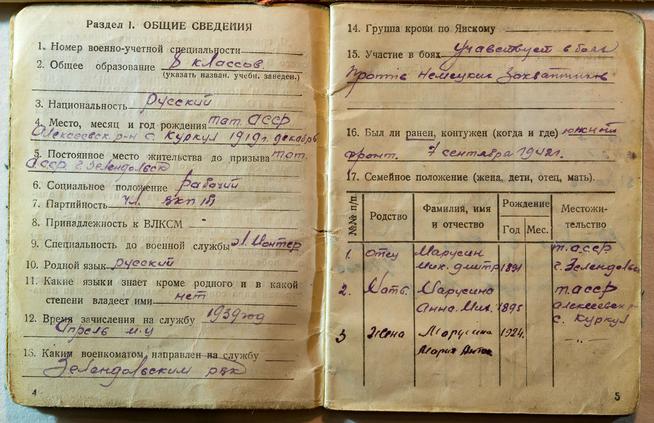 Раздел I. ОБЩИЕ СВЕДЕНИЯ
1. Номер военно-учетной специальности
2. Общее образование 8 классов
(указать назван. учебн. заведен.)
3. Национальность русский
4. Место, месяц и год рождения тат. АССР
Алексеевск. р-н с. Куркул 1919 г. декабрь
5. Постоянное место жительства до призыва тат.
АССР г. Зелендольск
6. Социальное положение рабочий
7. Партийность чл. ВКП(б)
8. Принадлежность к ВЛКСМ
9. Специальность до военной службы Эл. Монтер
10. Родной язык русский
11. Какие языки знает кроме родного и в какой
степени владеет ими нет
12. Время зачисления на службу 1939 год
Апрель м-ц
13. Каким военкоматом, направлен на службу
Зелендольским рвк
4
14. Группа крови по Янскому
15. Участие в боях участвует в боях
против немецких захватчиков
16. Был ли ранен, контужен (когда и где) южный
фронт. 7 сентября 1942 г.
17. Семейное положение (жена, дети, отец, мать).
№№ п/п. Родство Фамилия, имя и отчество Рождение Год Мес. Местожительство
1. отец Марусин т. АССР
Мих. Дмитр 1891 г. Зелендольск
2. Мать Марусина т АССР
Анна Мих. 1895 Алексеевск р-н
с. Куркул
3 Жена Марусина 1924. -„-
Мария
5